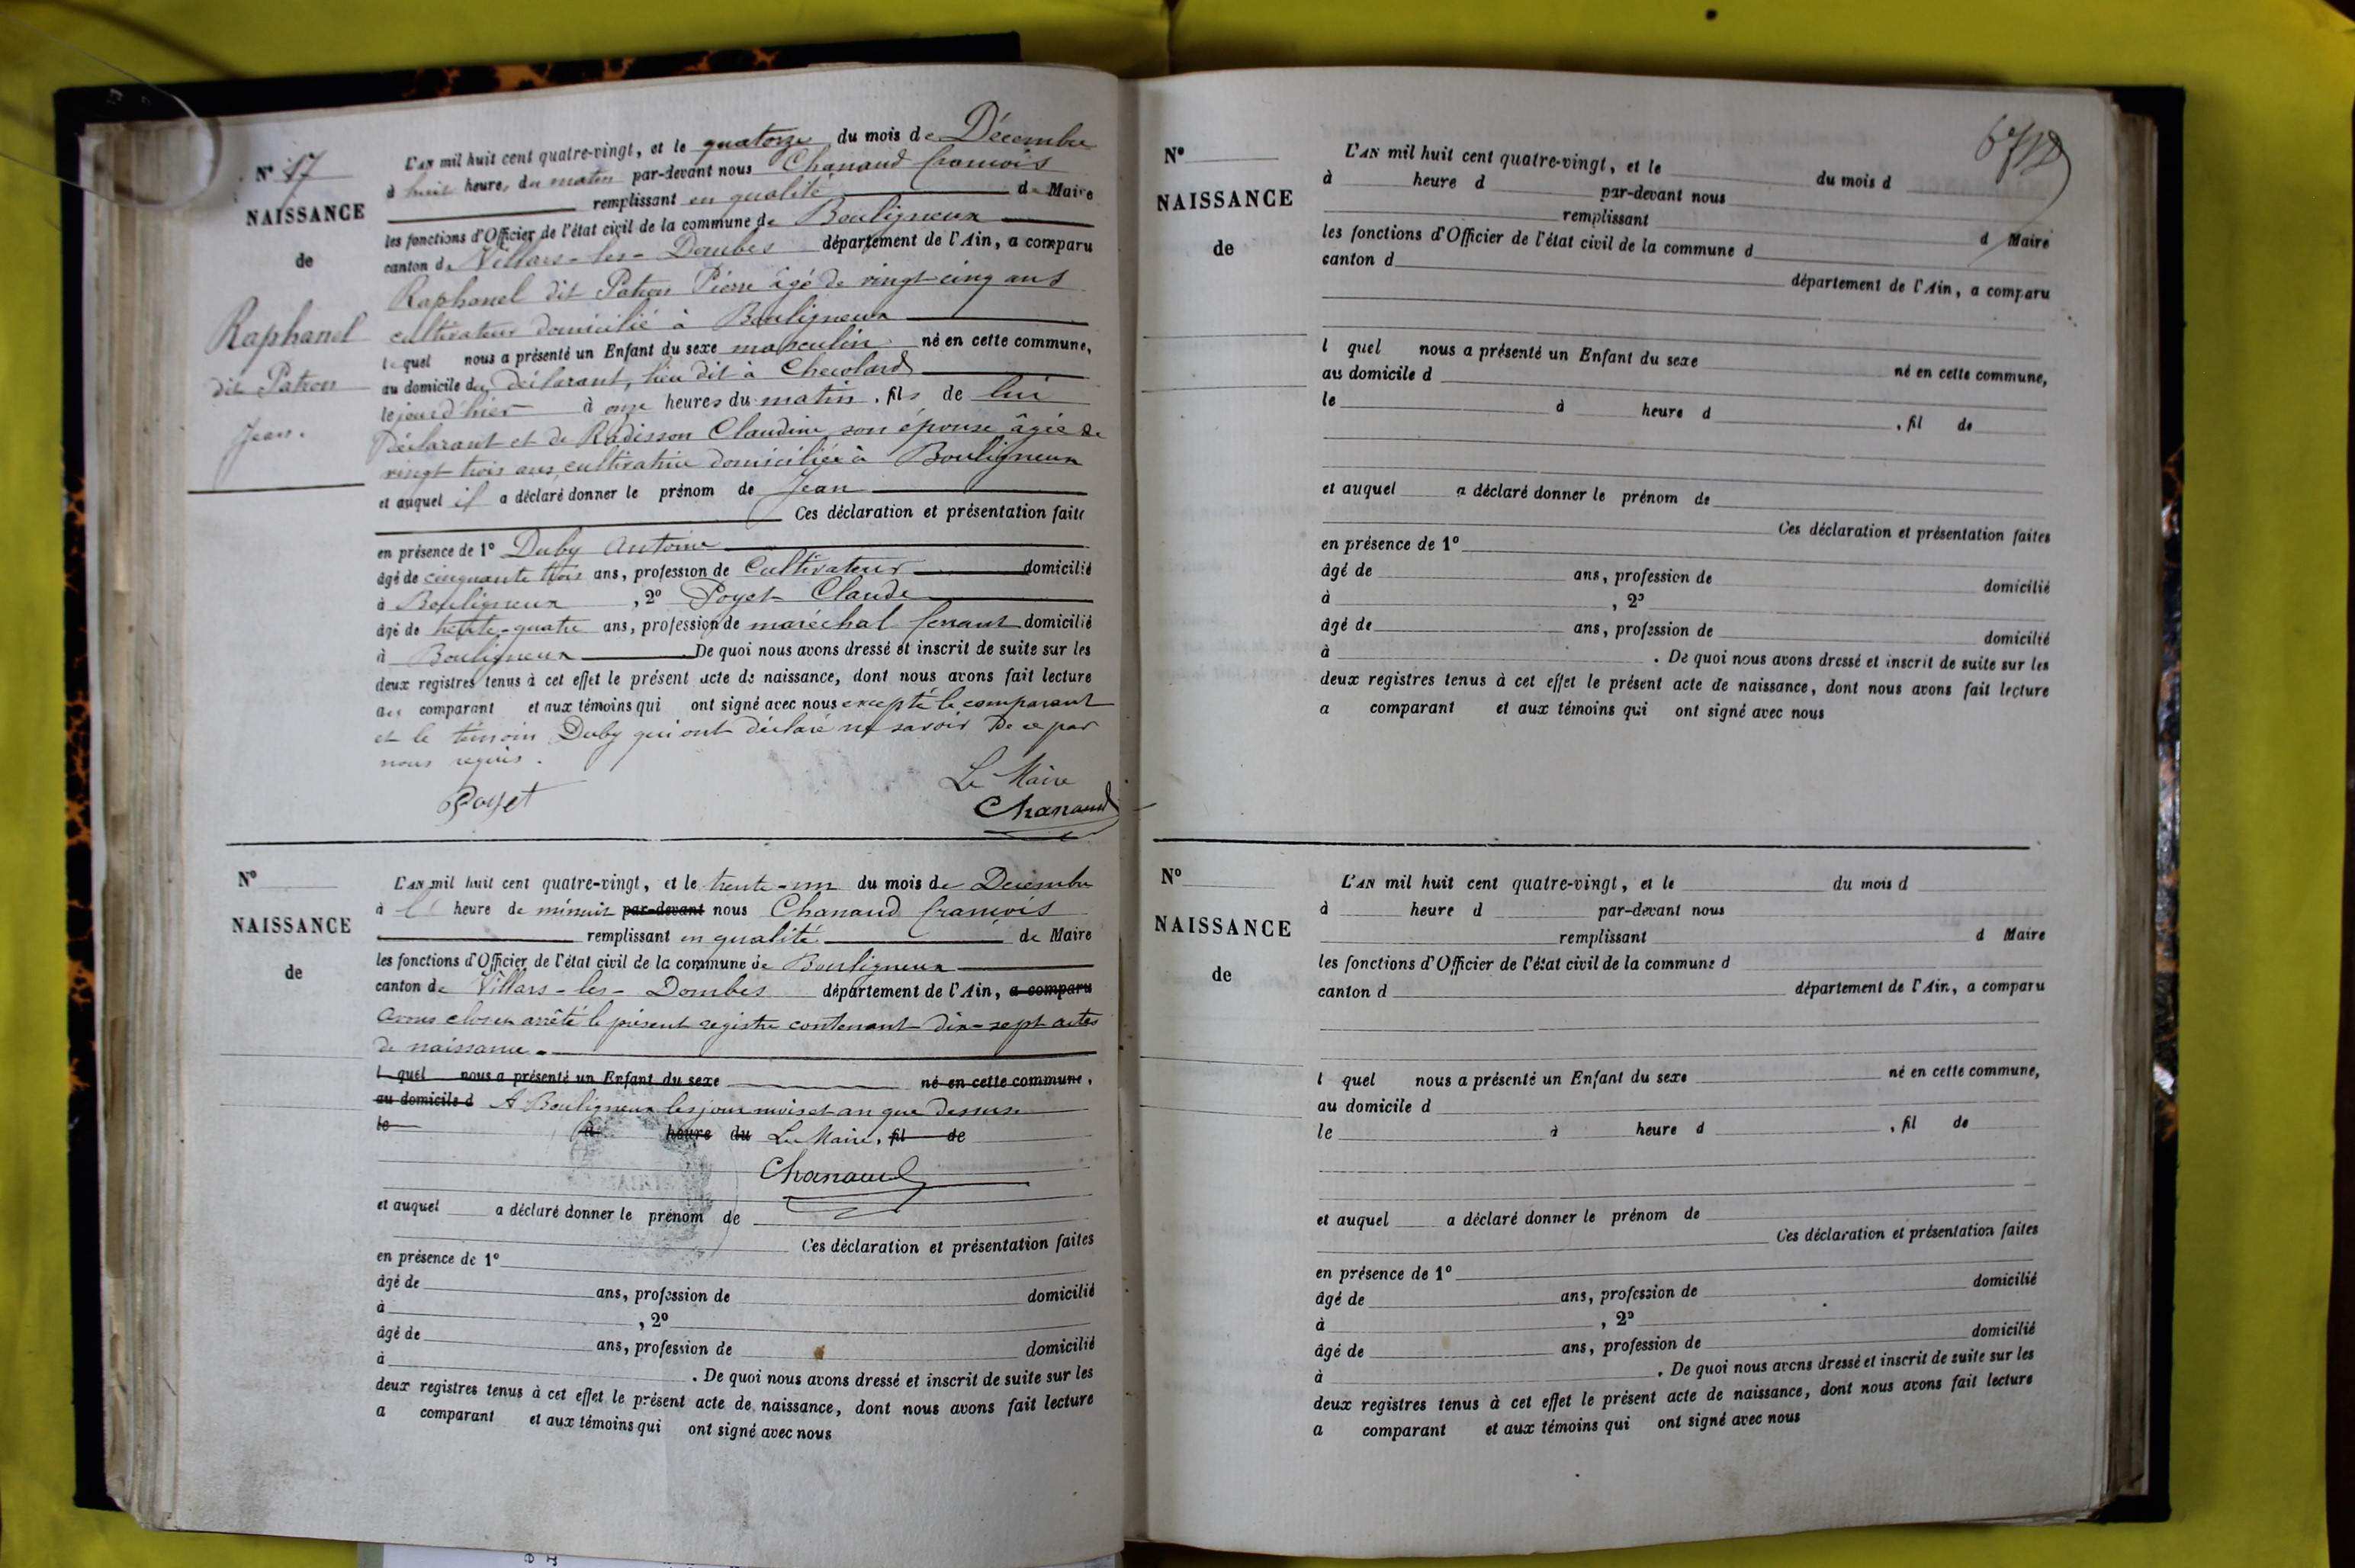 N° 17
NAISSANCE
de
Raphanel
dit Patron
Jean.
L'AN mil huit cent quatre-vingt, et le quatorze du mois de Décembre
à huit heures du matin par-devant nous Chanaud françois
remplissant en qualité de Maire
les fonctions d'Officier de l'état civil de la commune de Bouligneux
canton de Villars-les-Dombes département de l'Ain, a comparu
Raphanel dit Patron Pierre âgé de vingt-cinq ans
cultivateur domicilié à Bouligneux
lequel nous a présenté un Enfant du sexe masculin né en cette commune,
au domicile du déclarant, lieu dit à
le jour d'hier à onze heures du matin, fils de lui
Déclarant et de Radisson Claudine son épouse âgée de
vingt trois ans cultivatrice domiciliée à Bouligneux
et auquel il a déclaré donner le prénom de Jean
Ces déclaration et présentation faites
en présence de 1° Duby Antoine
âgé de cinquante trois ans, profession de Cultivateur domicilié
à Bouligneux, 2° Poyet Claude
âgé de trente-quatre ans, profession de maréchal ferrant domicilié
à Bouligneux. De quoi nous avons dressé et inscrit de suite sur les
deux registres tenus à cet effet le présent acte de naissance, dont nous avons fait lecture
au comparant et aux témoins qui ont signé avec nous excepté le comparant
et le témoin Duby qui ont déclaré ne savoir De ce par
nous requis.
Le Maire
Poyet
Chanaud
N°
NAISSANCE
de
L'AN mil huit cent quatre-vingt, et le trente-un du mois de Décembre
à l' heure de minuit par-devant nous Chanaud françois
remplissant en qualité de Maire
les fonctions d'Officier de l'état civil de la commune de Bouligneux
canton de Villars-les-Dombes département de l'Ain, a comparu
avons clos et arrêté le présent registre contenant dix-sept actes
de naissance.
l quel nous a présenté un Enfant du sexe né en cette commune,
au domicile d A Bouligneux les jour mois et an que dessus
le à heure du Le Maire, fil de
Chanaud
et auquel a déclaré donner le prénom de
Ces déclaration et présentation faites
en présence de 1°
âgé de ans, profession de domicilié
à , 2°
âgé de ans, profession de domicilié
à . De quoi nous avons dressé et inscrit de suite sur les
deux registres tenus à cet effet le présent acte de naissance, dont nous avons fait lecture
a comparant et aux témoins qui ont signé avec nous
N°
NAISSANCE
de
L'AN mil huit cent quatre-vingt, et le du mois d
à heure d par-devant nous
remplissant d Maire
les fonctions d'Officier de l'état civil de la commune d
canton d département de l'Ain, a comparu
l quel nous a présenté un Enfant du sexe né en cette commune,
au domicile d
le à heure d , fil de
et auquel a déclaré donner le prénom de
Ces déclaration et présentation faites
en présence de 1°
âgé de ans, profession de domicilié
à , 2°
âgé de ans, profession de domicilié
à . De quoi nous avons dressé et inscrit de suite sur les
deux registres tenus à cet effet le présent acte de naissance, dont nous avons fait lecture
a comparant et aux témoins qui ont signé avec nous
N°
NAISSANCE
de
L'AN mil huit cent quatre-vingt, et le du mois d
à heure d par-devant nous
remplissant d Maire
les fonctions d'Officier de l'état civil de la commune d
canton d département de l'Ain, a comparu
l quel nous a présenté un Enfant du sexe né en cette commune,
au domicile d
le à heure d , fil de
et auquel a déclaré donner le prénom de
Ces déclaration et présentation faites
en présence de 1°
âgé de ans, profession de domicilié
à , 2°
âgé de ans, profession de domicilié
à . De quoi nous avons dressé et inscrit de suite sur les
deux registres tenus à cet effet le présent acte de naissance, dont nous avons fait lecture
a comparant et aux témoins qui ont signé avec nous